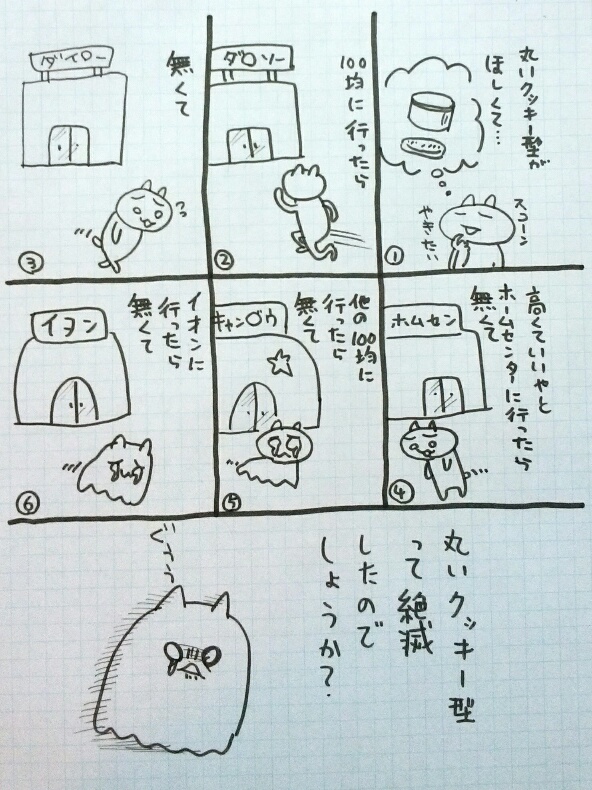 丸いクッキー型が
ほしくて…
スコーン
やきたい
①
100均に行ったら
ダロソー
②
無くて
ダイロー
③
高くていいやと
ホームセンターに行ったら
無くて
ホムセン
④
他の100均に
行ったら
無くて
キャンヴウ
⑤
イオンに
行ったら
無くて
イヨン
⑥
丸いクッキー型
って絶滅
したので
しょうか?
ぐうう